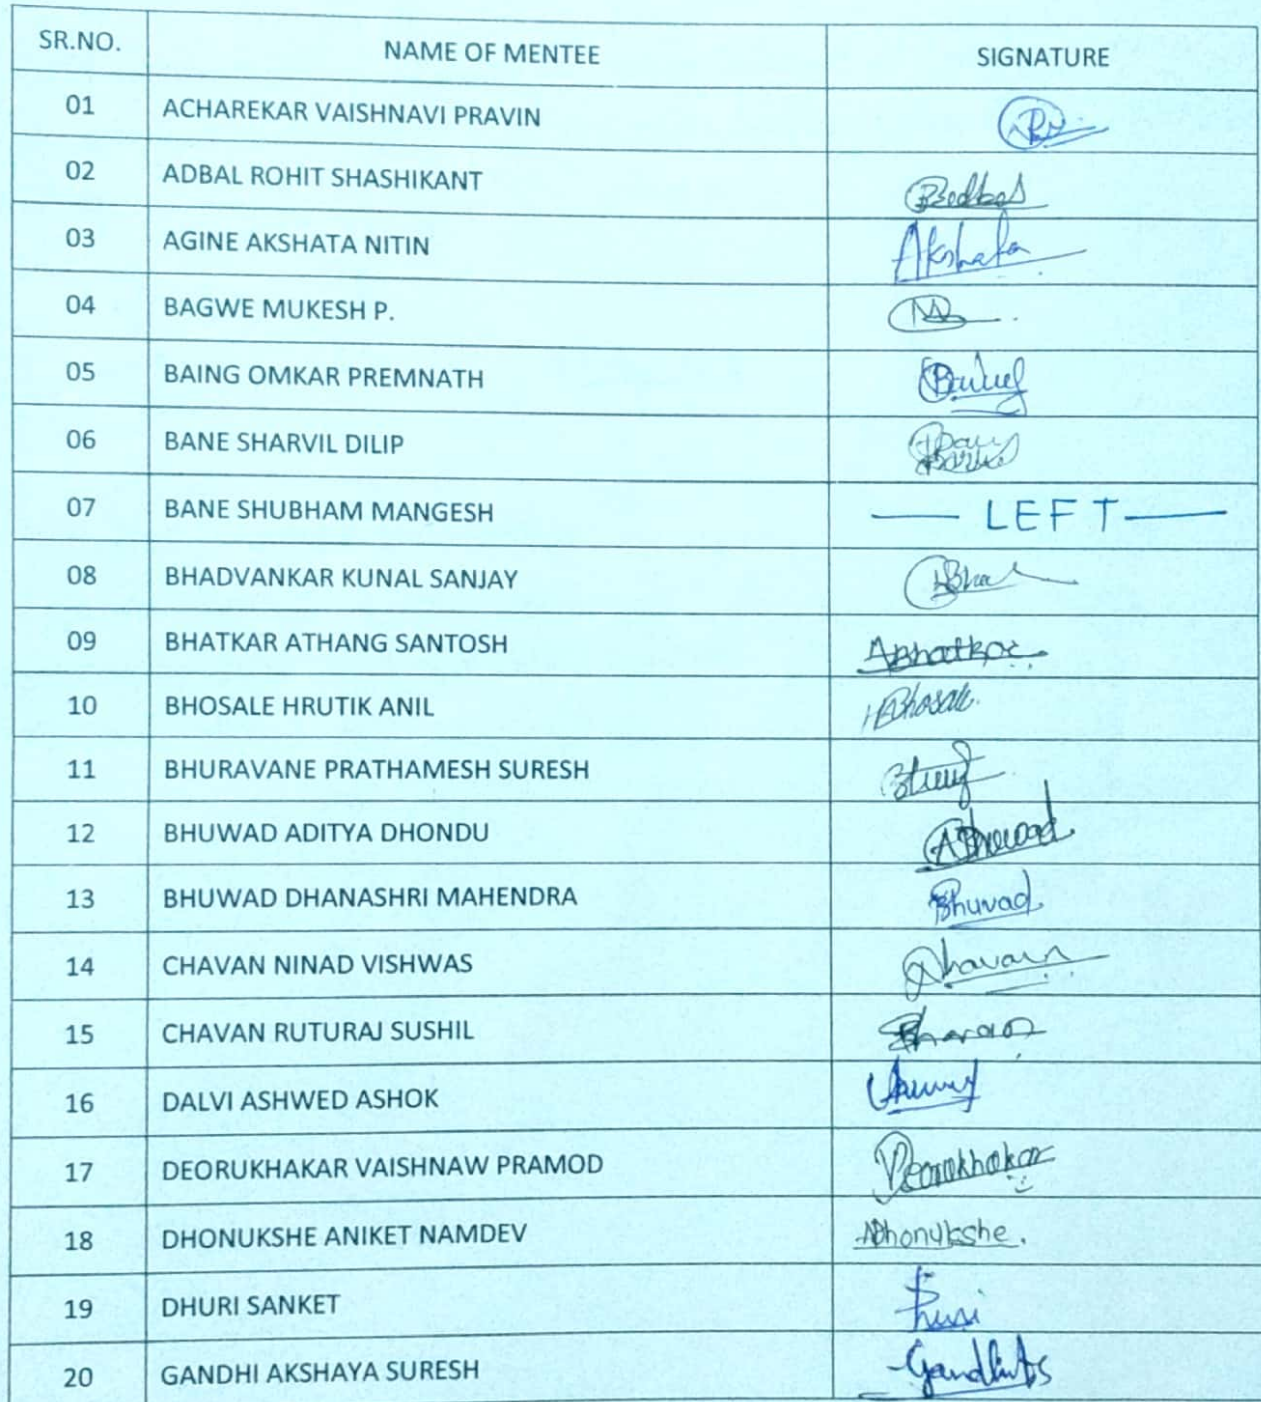 SR.NO. NAME OF MENTEE SIGNATURE
01 ACHAREKAR VAISHNAVI PRAVIN
02 ADBAL ROHIT SHASHIKANT
03 AGINE AKSHATA NITIN Akshata
04 BAGWE MUKESH P.
05 BAING OMKAR PREMNATH
06 BANE SHARVIL DILIP
07 BANE SHUBHAM MANGESH — LEFT —
08 BHADVANKAR KUNAL SANJAY
09 BHATKAR ATHANG SANTOSH ABhatkar.
10 BHOSALE HRUTIK ANIL HABhosale.
11 BHURAVANE PRATHAMESH SURESH
12 BHUWAD ADITYA DHONDU ABhuwad.
13 BHUWAD DHANASHRI MAHENDRA Bhuvad.
14 CHAVAN NINAD VISHWAS Chavan
15 CHAVAN RUTURAJ SUSHIL
16 DALVI ASHWED ASHOK
17 DEORUKHAKAR VAISHNAW PRAMOD Deorukhakar
18 DHONUKSHE ANIKET NAMDEV ADhonukshe.
19 DHURI SANKET Dhuri
20 GANDHI AKSHAYA SURESH